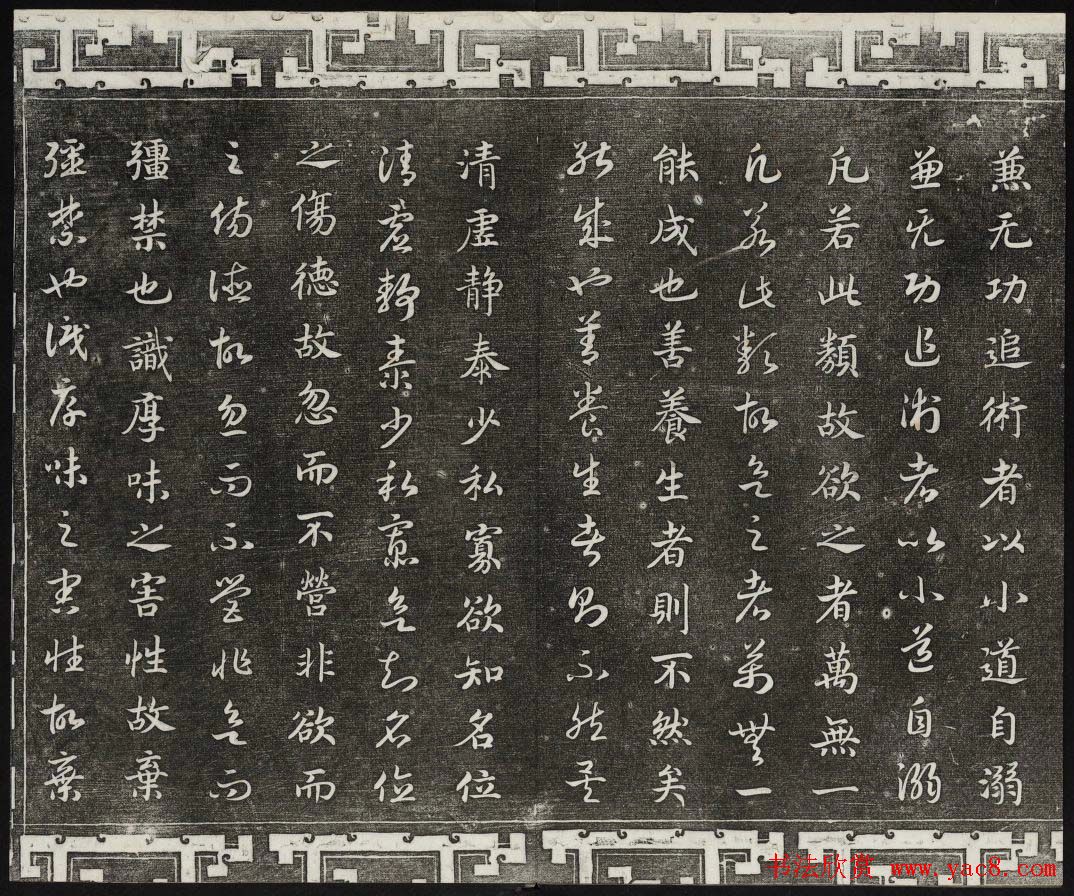 兼无功追術者以小道自溺
兼无功追術者以小道自溺
凡若此類故欲之者萬無一
凡若此類故欲之者萬無一
能成也善養生者則不然矣
能成也善養生者則不然矣
清虛靜泰少私寡欲知名位
清虛靜泰少私寡欲知名位
之傷德故忽而不營非欲而
之傷德故忽而不營非欲而
彊禁也識厚味之害性故棄
彊禁也識厚味之害性故棄
书法欣赏 www.yac8.com